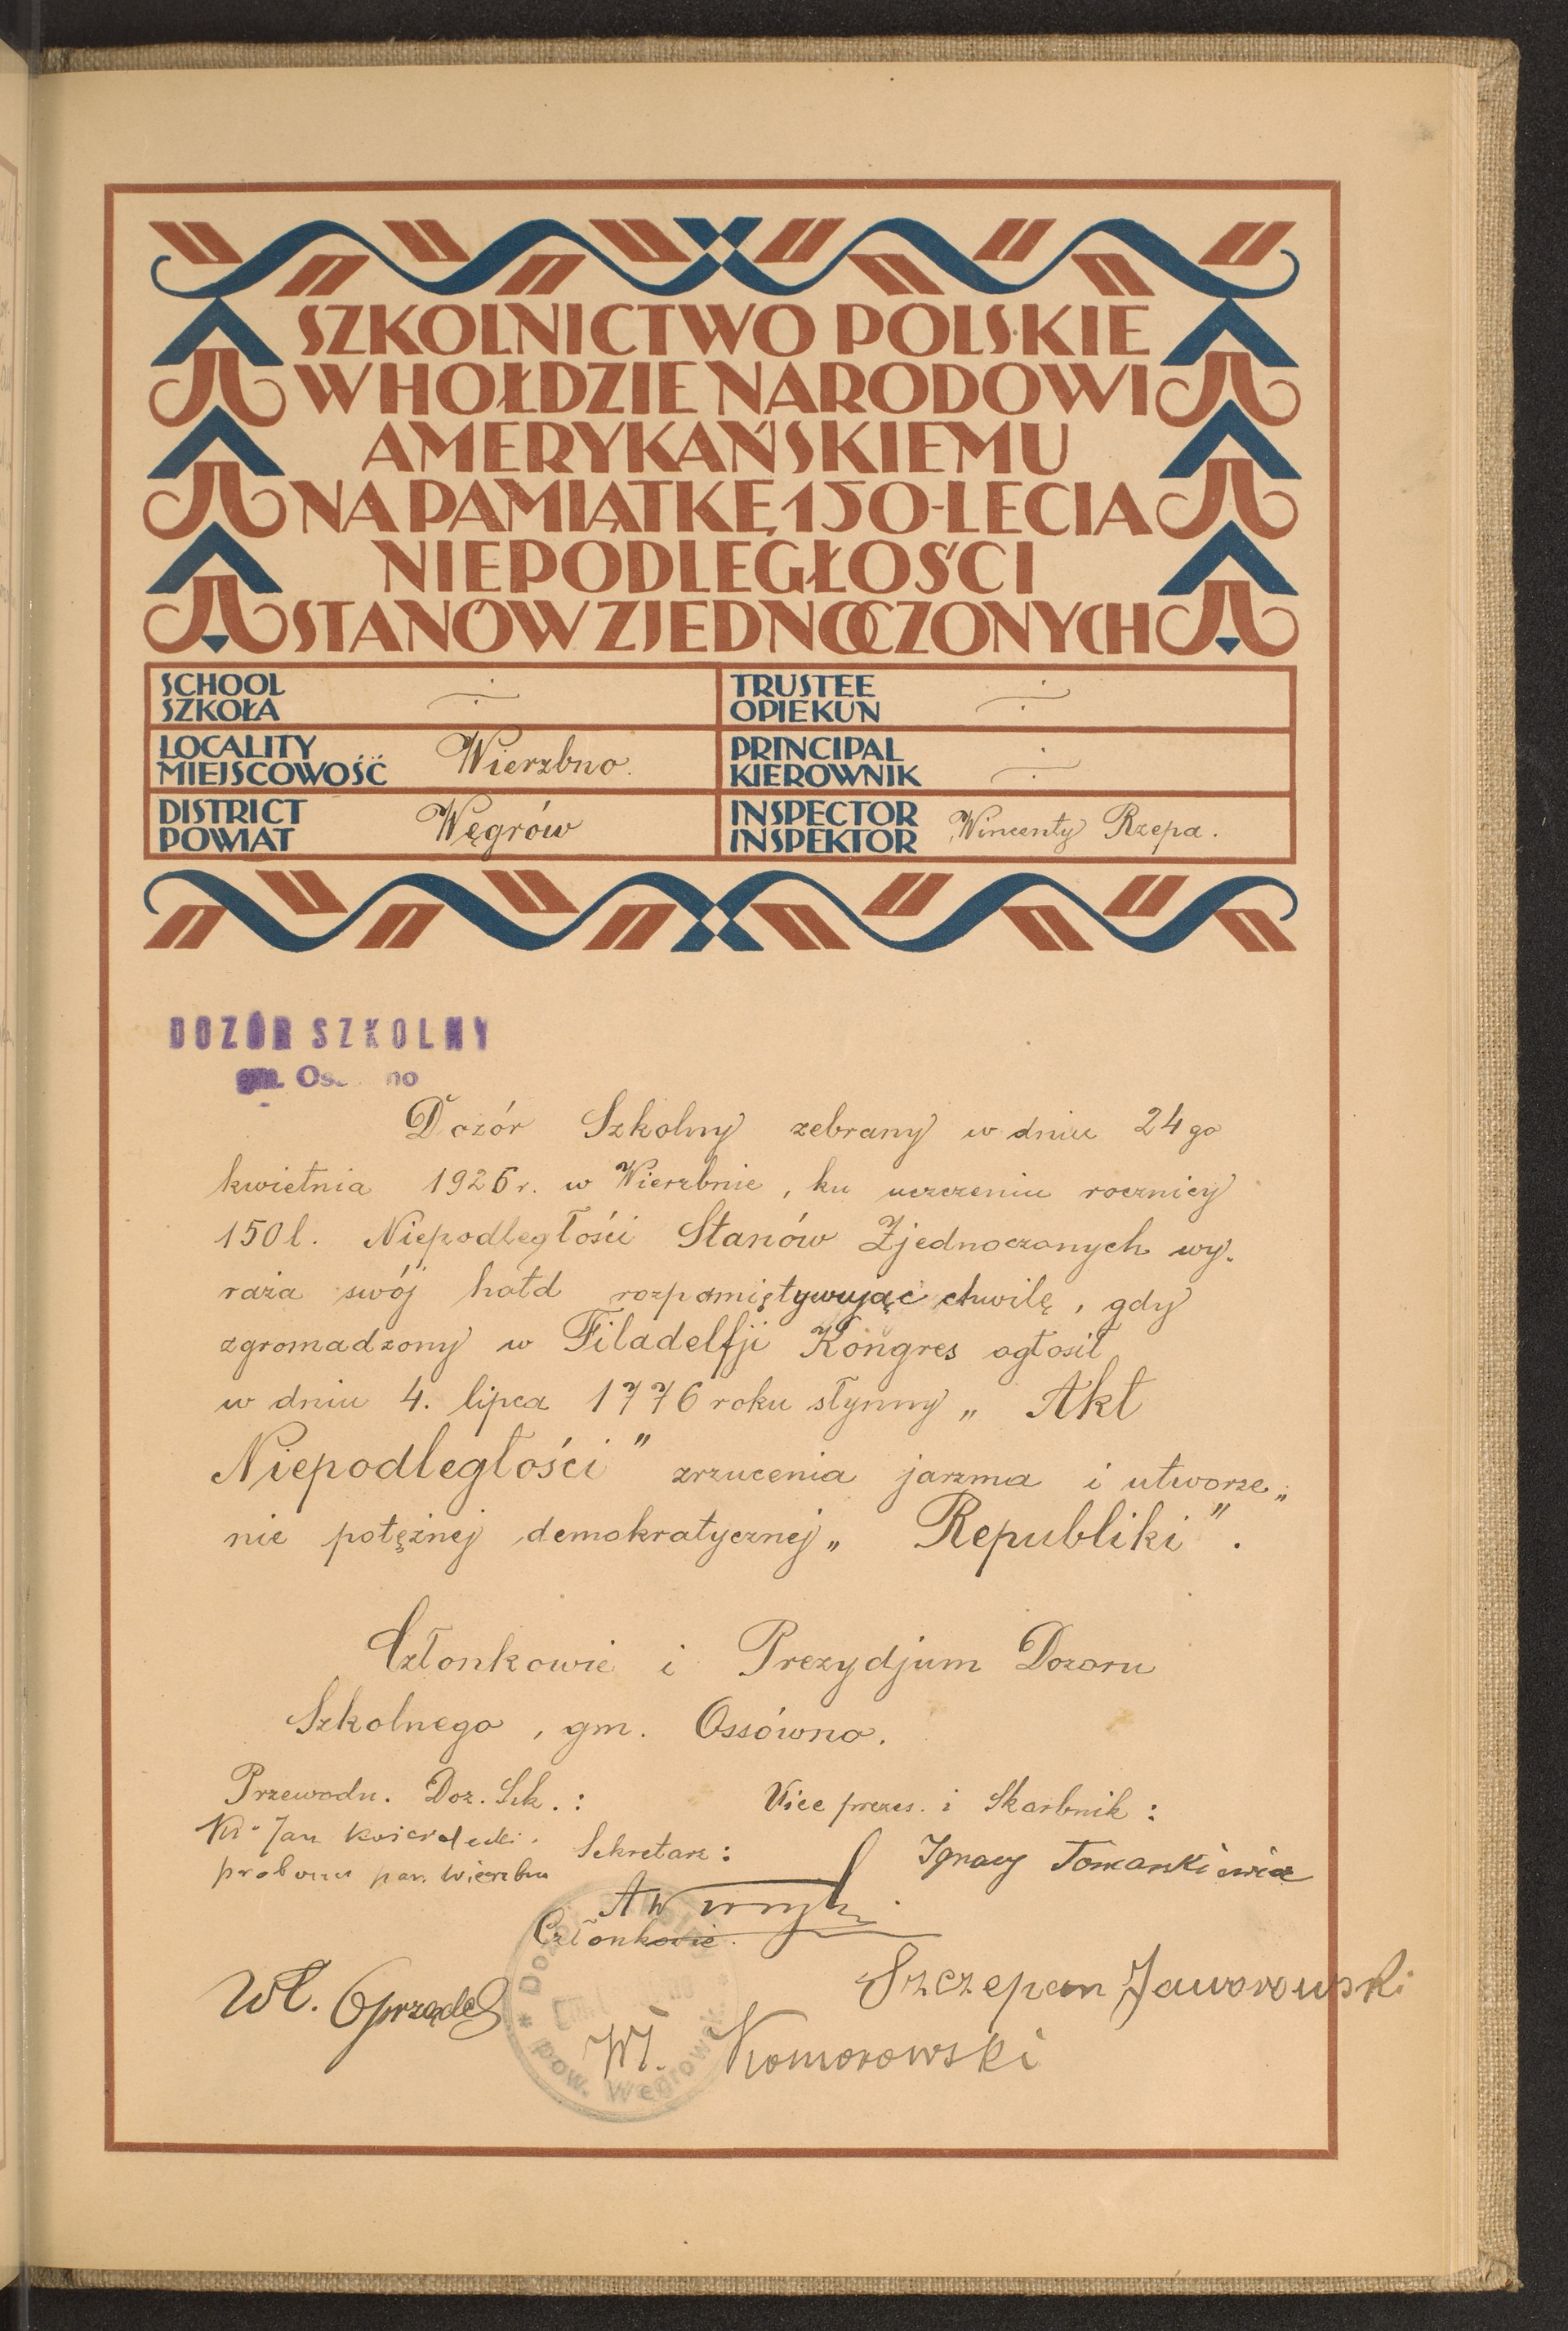 SZKOLNICTWO POLSKIE
W HOŁDZIE NARODOWI
AMERYKAŃSKIEMU
NA PAMIĄTKĘ 150-LECIA
NIEPODLEGŁOŚCI
STANÓW ZJEDNOCZONYCH
SCHOOL
SZKOŁA
TRUSTEE
OPIEKUN
LOCALITY
MIEJSCOWOŚĆ Wierzbno.
PRINCIPAL
KIEROWNIK
DISTRICT
POWIAT Węgrów
INSPECTOR
INSPEKTOR Wincenty Rzepa.
DOZÓR SZKOLNY
gm.
Dozór Szkolny zebrany w dniu 24 go
kwietnia 1926 r. w Wierzbnie, ku uczczeniu rocznicy
150 l. Niepodległości Stanów Zjednoczonych wy-
raża swój hołd rozpamiętywując chwilę, gdy
zgromadzony w Filadelfji Kongres ogłosił
w dniu 4. lipca 1776 roku słynny „ Akt
Niepodległości" zrzucenia jarzma i utworze„
nie potężnej demokratycznej „ Republiki".
Członkowie i Prezydjum Dozoru
Szkolnego, gm. Ossówno.
Przewodn. Doz. Szk.:
Vice prezes. i Skarbnik:
Jan
par.
Sekretarz:
Ignacy Tomaszkiewicz
Członkowie.
Szczepan Jaworowski
Wł.
Wł. Komorowski
* Dozór
pow. Węgrowsk. *